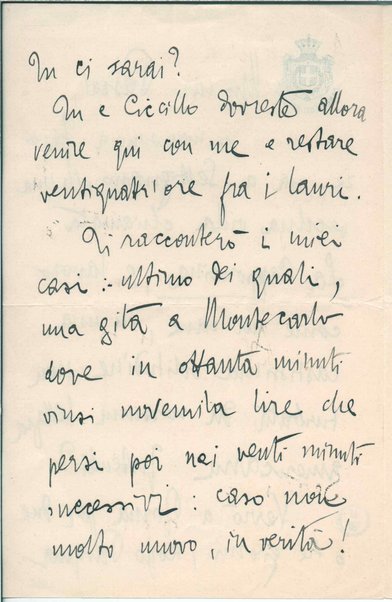 Tu ci sarai?
Tu e Ciccillo dovreste allora
venire qui con me e restare
ventiquattr'ore fra i lauri.
Ti racconterò i miei
casi: ultimo dei quali,
una gita a Montecarlo
dove in ottanta minuti
vinsi novemila lire che
persi poi nei venti minuti
successivi: caso non
molto nuovo, in verità!